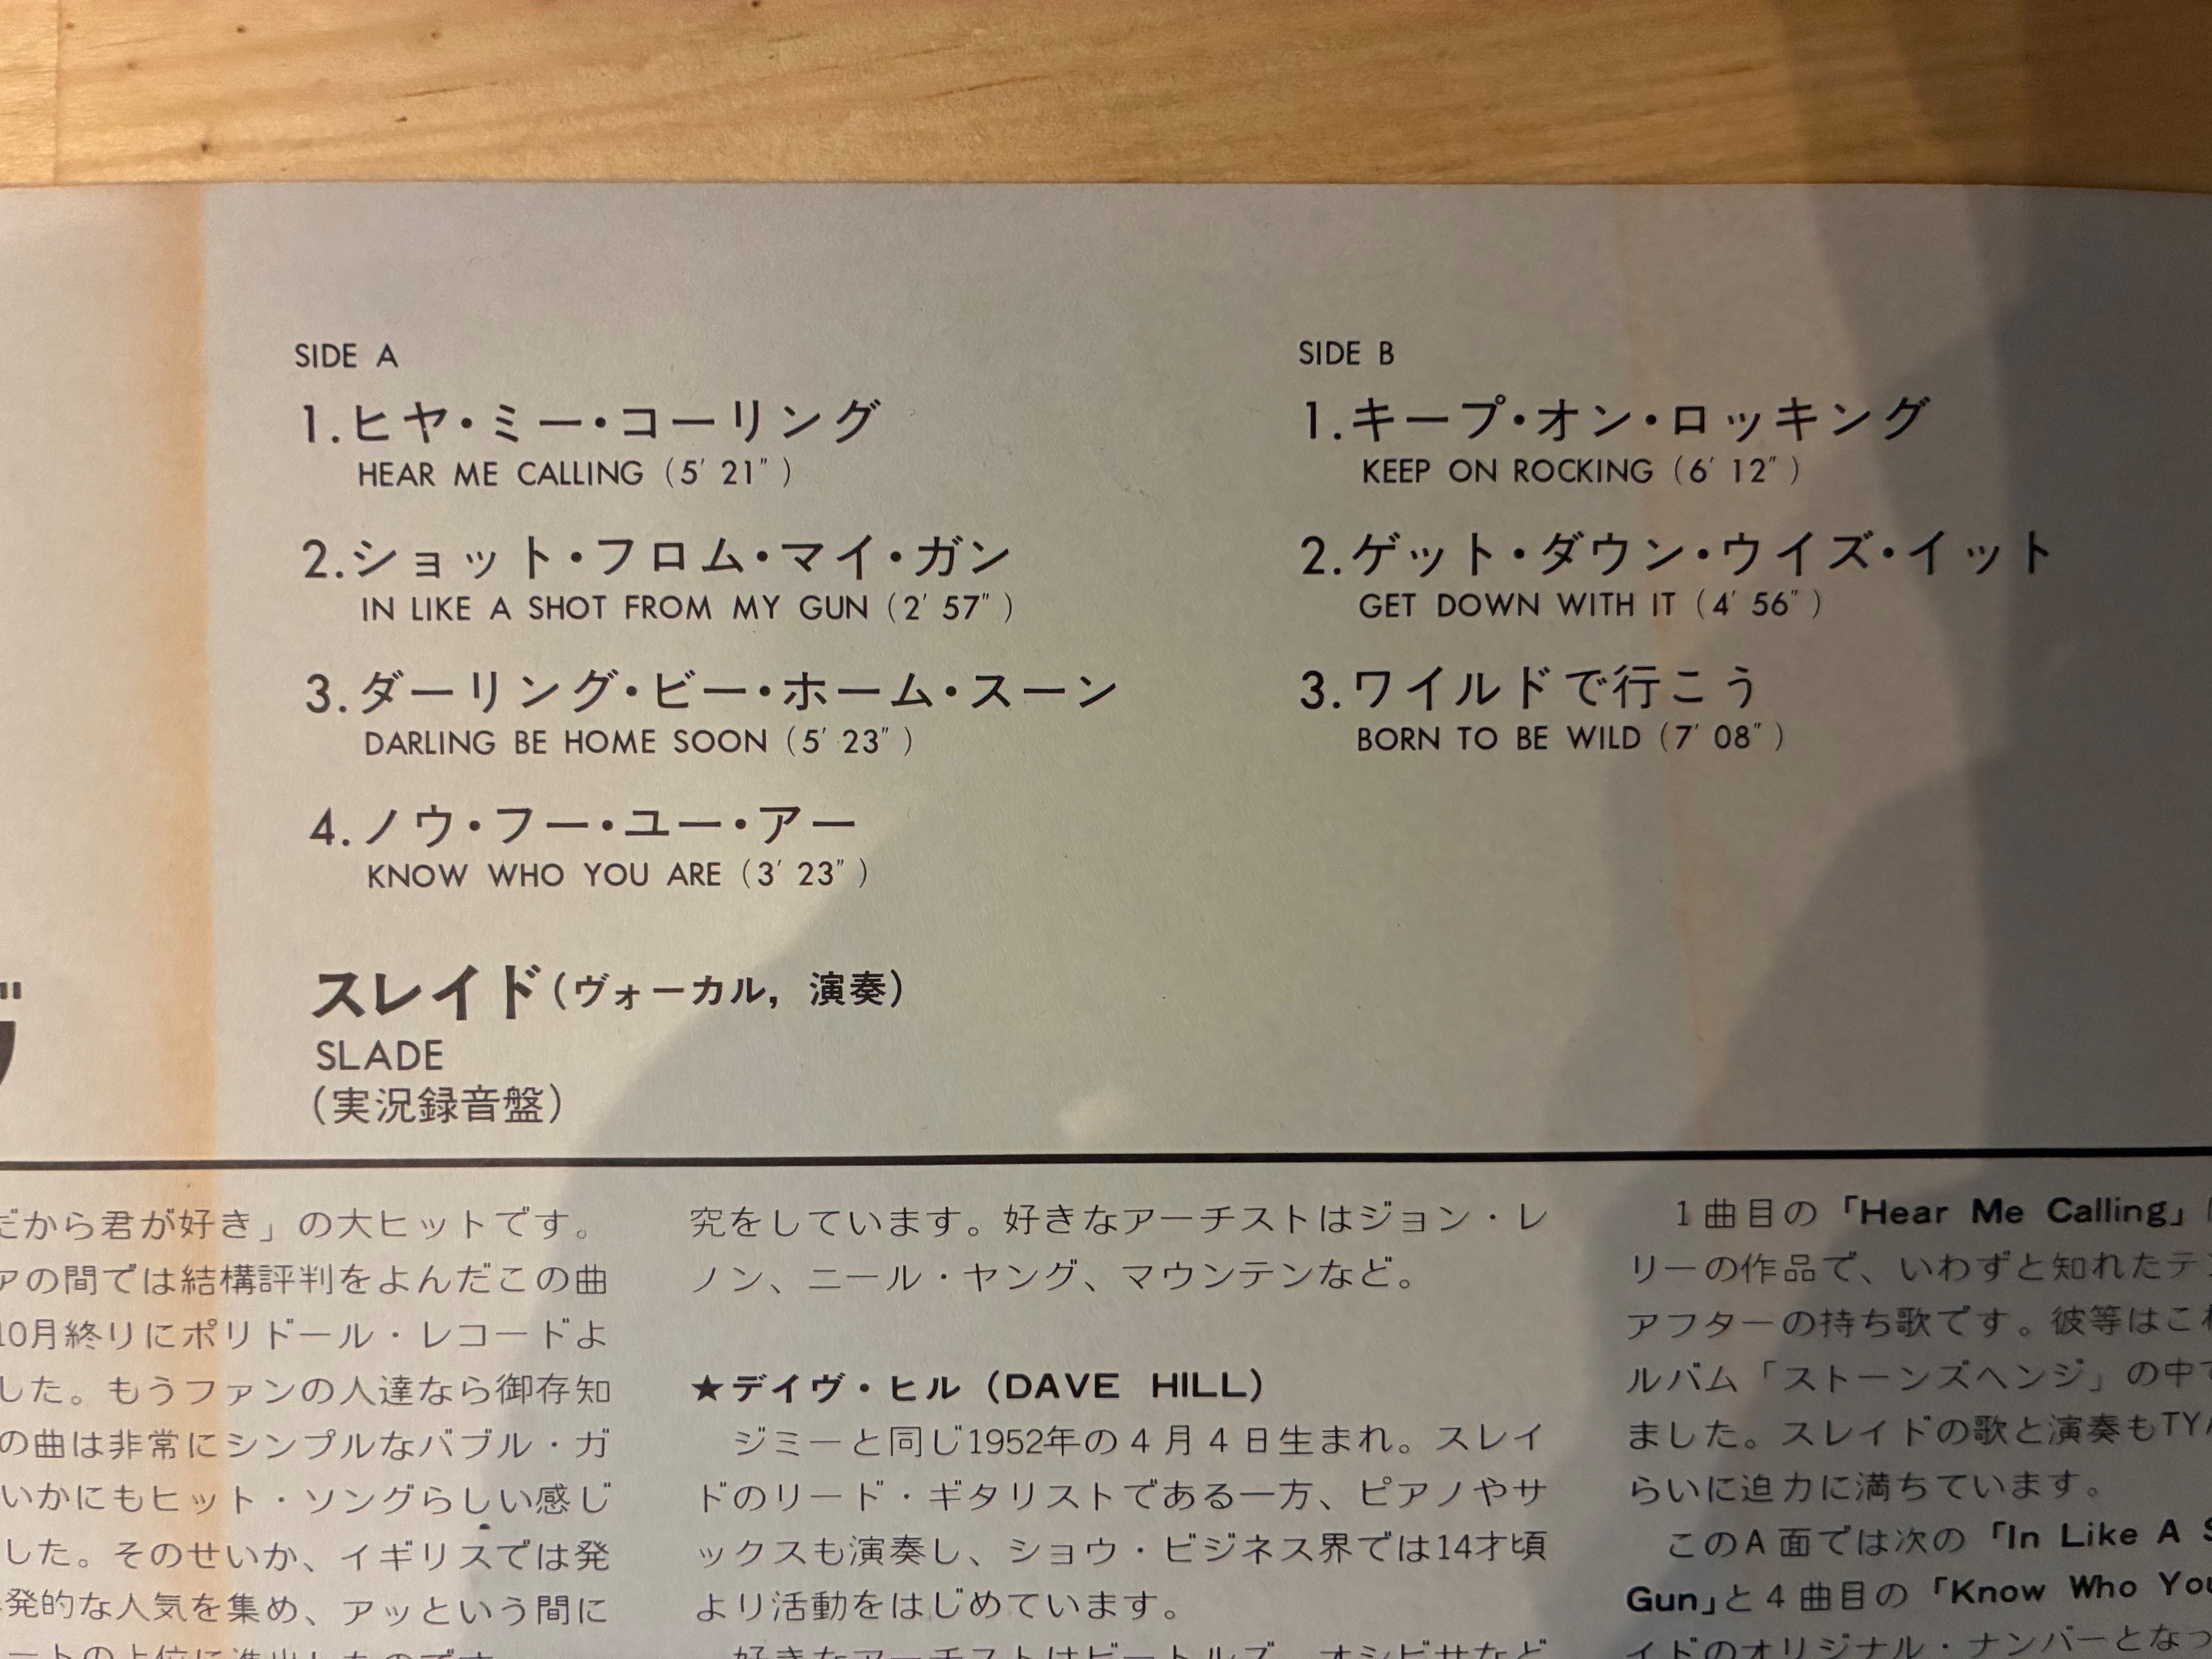 SIDE A
1.ヒヤ・ミー・コーリング
HEAR ME CALLING (5′ 21″ )
2.ショット・フロム・マイ・ガン
IN LIKE A SHOT FROM MY GUN (2′ 57″ )
3.ダーリング・ビー・ホーム・スーン
DARLING BE HOME SOON (5′ 23″ )
4.ノウ・フー・ユー・アー
KNOW WHO YOU ARE (3′ 23″ )
スレイド(ヴォーカル, 演奏)
SLADE
(実況録音盤)
SIDE B
1.キープ・オン・ロッキング
KEEP ON ROCKING (6′ 12″ )
2.ゲット・ダウン・ウイズ・イット
GET DOWN WITH IT (4′ 56″ )
3.ワイルドで行こう
BORN TO BE WILD (7′ 08″ )
だから君が好き」の大ヒットです。
の間では結構評判をよんだこの曲
10月終りにポリドール・レコードよ
した。もうファンの人達なら御存知
の曲は非常にシンプルなバブル・ガ
いかにもヒット・ソングらしい感じ
した。そのせいか、イギリスでは発
発的な人気を集め、アッという間に
究をしています。好きなアーチストはジョン・レ
ノン、ニール・ヤング、マウンテンなど。
★デイヴ・ヒル (DAVE HILL)
ジミーと同じ1952年の4月4日生まれ。スレイ
ドのリード・ギタリストである一方、ピアノやサ
ックスも演奏し、ショウ・ビジネス界では14才頃
より活動をはじめています。
好きなアーチストはビートルズ、オシビサなど
1曲目の「Hear Me Calling」
リーの作品で、いわずと知れたテ
アフターの持ち歌です。彼等はこ
ルバム「ストーンズヘンジ」の中で
ました。スレイドの歌と演奏もTY
らいに迫力に満ちています。
このA面では次の「In Like A S
Gun」と4曲目の「Know Who You
イドのオリジナル・ナンバーとなっ